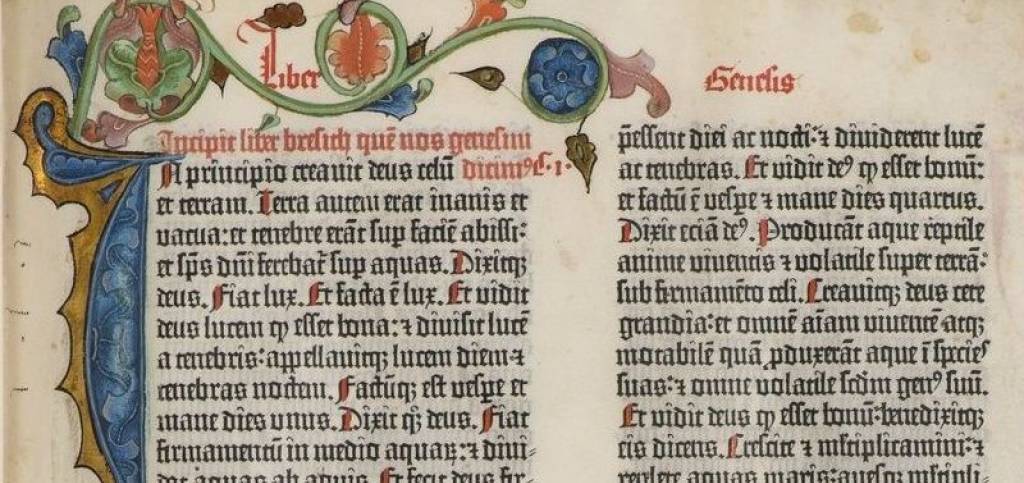 Liber
Genesis
Incipit liber bresich quē nos genesim
In principio creavit deus celū dicimꝰ C. 1.
et terram. Terra autem erat inanis et
vacua: et tenebre erāt sup faciē abissi:
et spūs dn̄i ferebat᷑ sup aquas. Dixitqꝫ
deus. Fiat lux. Et facta ē lux. Et vidit
deus lucem ꝙ esset bona: ⁊ divisit lucē
a tenebris: appellavitqꝫ lucem diem ⁊
tenebras noctem. Factūqꝫ est vespe et
mane dies unus. Dixit qꝫ deus. Fiat
firmamentū in medio aquaꝝ: ⁊ divi-
dat aquas ab aquis. Et fecit deus fir-
p̄essent diei ac nocti: ⁊ dividerent lucē
ac tenebras. Et vidit deꝰ ꝙ esset bonū:
et factū ē vespe ⁊ mane dies quartus.
Dixit eciā deꝰ. Producāt aque reptile
anime viventis ⁊ volatile super terrā:
sub firmamēto celi. Creavitqꝫ deus cete
grandia: et omnē aīam viventē atqꝫ
motabilē quā ꝓduxerāt aque ī species
suas: ⁊ omne volatile scdm genꝰ suū.
Et vidit deus ꝙ esset bonū: benedixitqꝫ
eis dicens. Crescite ⁊ mltiplicamini: ⁊
replete aquas maris: avesqꝫ mltipli-